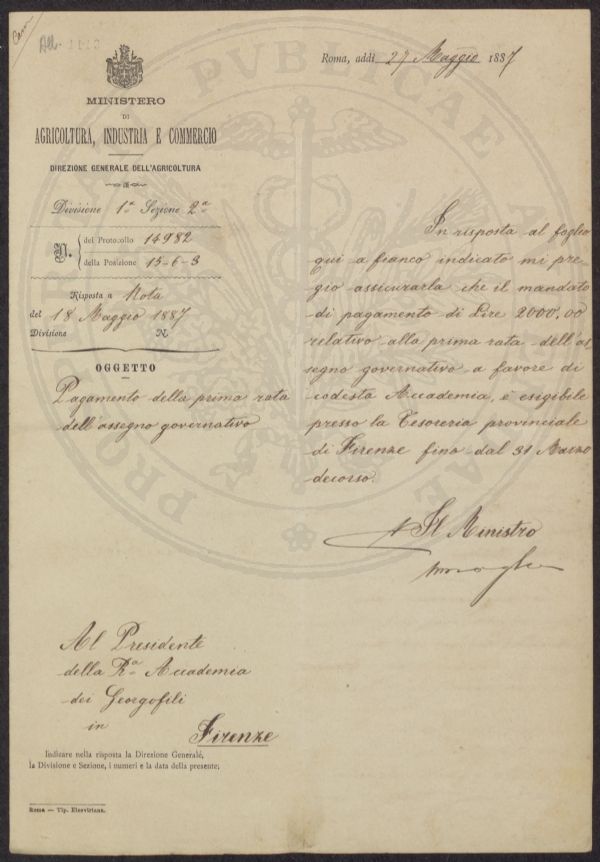 Roma, addì 27 Maggio 1887
MINISTERO
DI
AGRICOLTURA, INDUSTRIA E COMMERCIO
DIREZIONE GENERALE DELL'AGRICOLTURA
Divisione 1ª Sezione 2ª
N. del Protocollo 14982
della Posizione 15-6-3
Risposta a Nota
del 18 Maggio 1887
Divisione N.
OGGETTO
Pagamento della prima rata
dell'assegno governativo
In risposta al foglio
qui a fianco indicato mi pre
gio assicurarla che il mandato
di pagamento di Lire 2000,00
relativo alla prima rata dell'as
segno governativo a favore di
codesta Accademia, è esigibile
presso la Tesoreria provinciale
di Firenze fino dal 31 Marzo
decorso.
Il Ministro
Al Presidente
della Rª Accademia
dei Georgofili
in
Firenze
Indicare nella risposta la Direzione Generale,
la Divisione e Sezione, i numeri e la data della presente;
Roma — Tip. Elzeviriana.